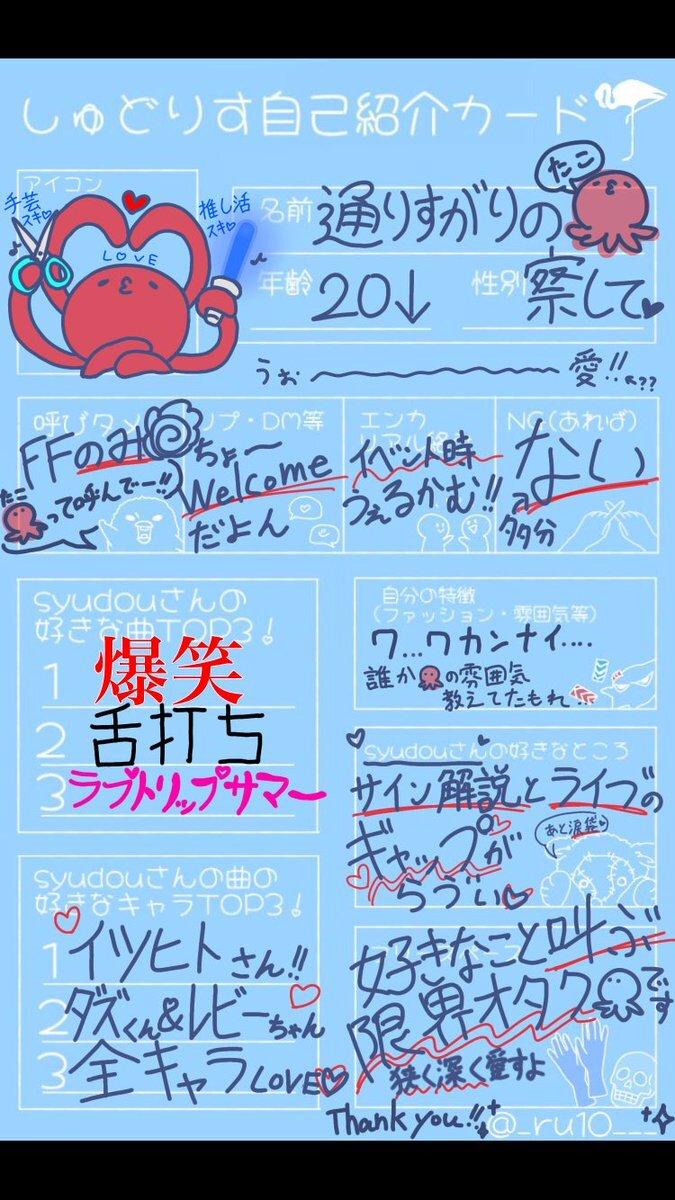 しゅどりす自己紹介カード
アイコン
手芸
スキ♡
推し活
スキ♡
LOVE
名前
通りすがりの
たこ
年齢
20↓
性別
察して♥
うぉ 〜〜〜 愛!!
←??
呼びタメ
FFのみ
たこ
って呼んでー!!
リプ・DM等
ちょー
Welcome
だよん
エンカ
イベント時
うぇるかむ!!
NG(あれば)
ない
多分
syudouさんの
好きな曲TOP3!
1 爆笑
2 舌打ち
3 ラブトリップサマー
自分の特徴
(ファッション・雰囲気等)
ワ…ワカンナイ….
誰か の雰囲気
教えてたもれ…
syudouさんの好きなところ
サイン解説とライブの
ギャップが
らづい♥
あと涙袋♡
syudouさんの曲の
好きなキャラTOP3!
1 イツヒトさん!!
2 ダズくん&レビーちゃん
3 全キャラLOVE♡
好きなこと叫ぶ
限界オタク です
狭く深く愛すよ
Thank you!!
@_ru10___